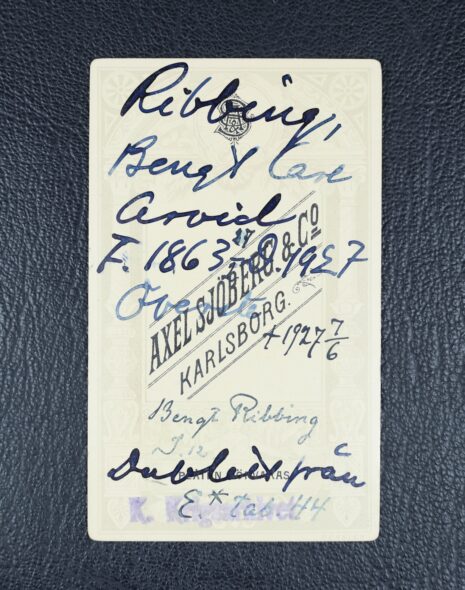 Ribbing,
Bengt Carl
Arvid
F. 1863 D 1927
Överste
AXEL SJÖBERG. & Co
KARLSBORG.
+ 1927 7/6
Bengt Ribbing
I. 12
Dubblett från
E.* tab. 44
K. Krigsarkivet